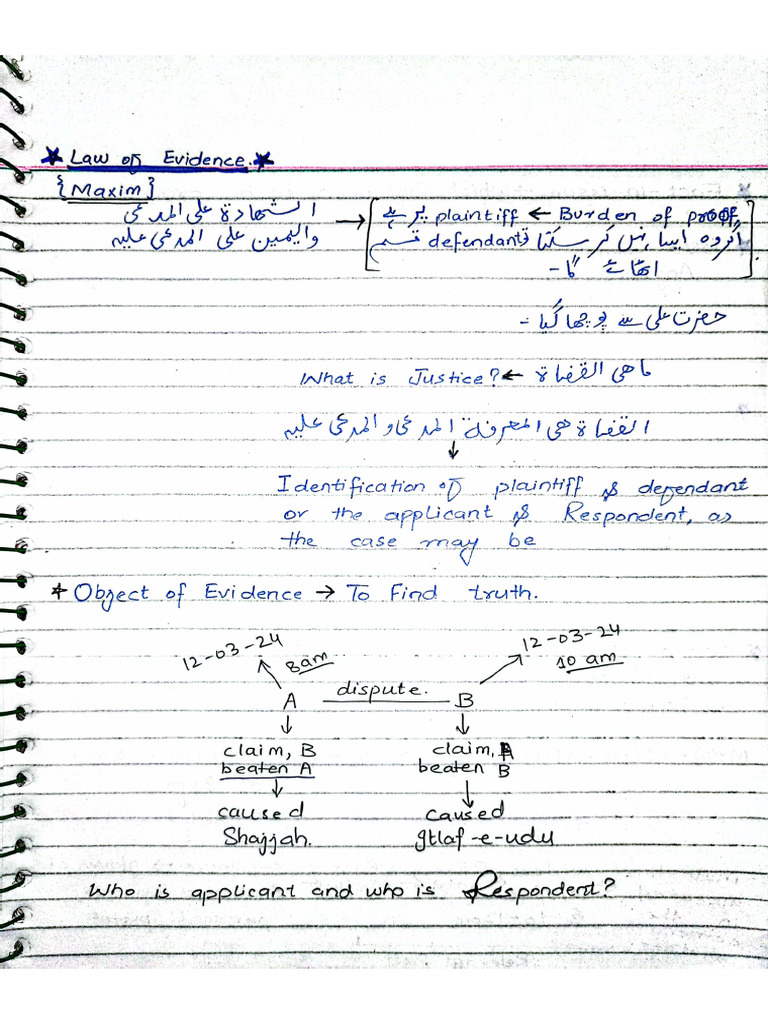 ★ Law of Evidence. ★
{Maxim}
الشهادة على المدعى
واليمين على المدعى عليه
→ [Burden of proof → plaintiff پر ہے
اگر وہ ایسا نہیں کر سکتا تو defendant قسم
اٹھائے گا۔]
حضرت علی سے پوچھا گیا۔
ما هي القضاة → What is Justice?
القضاة هي المعرفة المدعى و المدعى عليه
↓
Identification of plaintiff & defendant
or the applicant & Respondent, as
the case may be
* Object of Evidence → To Find truth.
12-03-24 12-03-24
8am 10 am
A dispute. B
↓ ↓
claim, B claim, A
beaten A beaten B
↓ ↓
caused caused
Shajjah. Itlaf-e-udu
Who is applicant and who is Respondent?